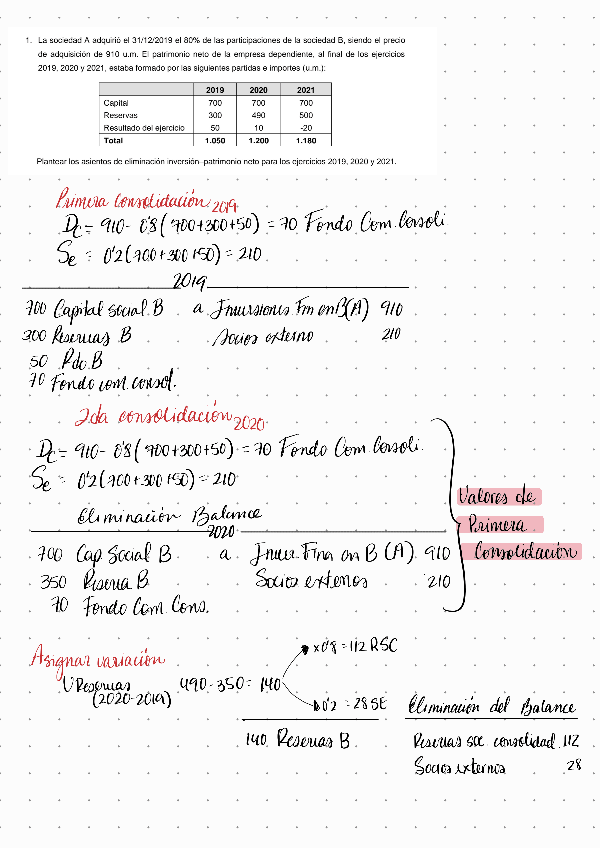 1. La sociedad A adquirió el 31/12/2019 el 80% de las participaciones de la sociedad B, siendo el precio
de adquisición de 910 u.m. El patrimonio neto de la empresa dependiente, al final de los ejercicios
2019, 2020 y 2021, estaba formado por las siguientes partidas e importes (u.m.):
2019 2020 2021
Capital 700 700 700
Reservas 300 490 500
Resultado del ejercicio 50 10 -20
Total 1.050 1.200 1.180
Plantear los asientos de eliminación inversión-patrimonio neto para los ejercicios 2019, 2020 y 2021.
Primera Consolidación 2019
Dc = 910 - 0'8 (700+300+50) = 70 Fondo Com. Consoli
Se = 0'2 (700+300+50) = 210
2019
700 Capital Social B a Inversiones Fin en B(A) 910
300 Reservas B Socios externo 210
50 Rdo. B
70 Fondo com. consol.
2da consolidación 2020
Dc = 910 - 0'8 (700+300+50) = 70 Fondo Com. Consoli.
Se = 0'2 (700+300+50) = 210
Valores de
Primera
Consolidación
Eliminación Balance
2020
700 Cap Social B a Inver. Fina en B (A) 910
350 Reserva B Socios externos 210
70 Fondo Com. Cons.
Asignar variación
V Reservas 490 - 350 = 140
(2020-2019)
x 0'8 = 112 RSC
0'2 = 28 SE
Eliminación del Balance
140 Reservas B Reservas soc consolidad. 112
Socios externos 28